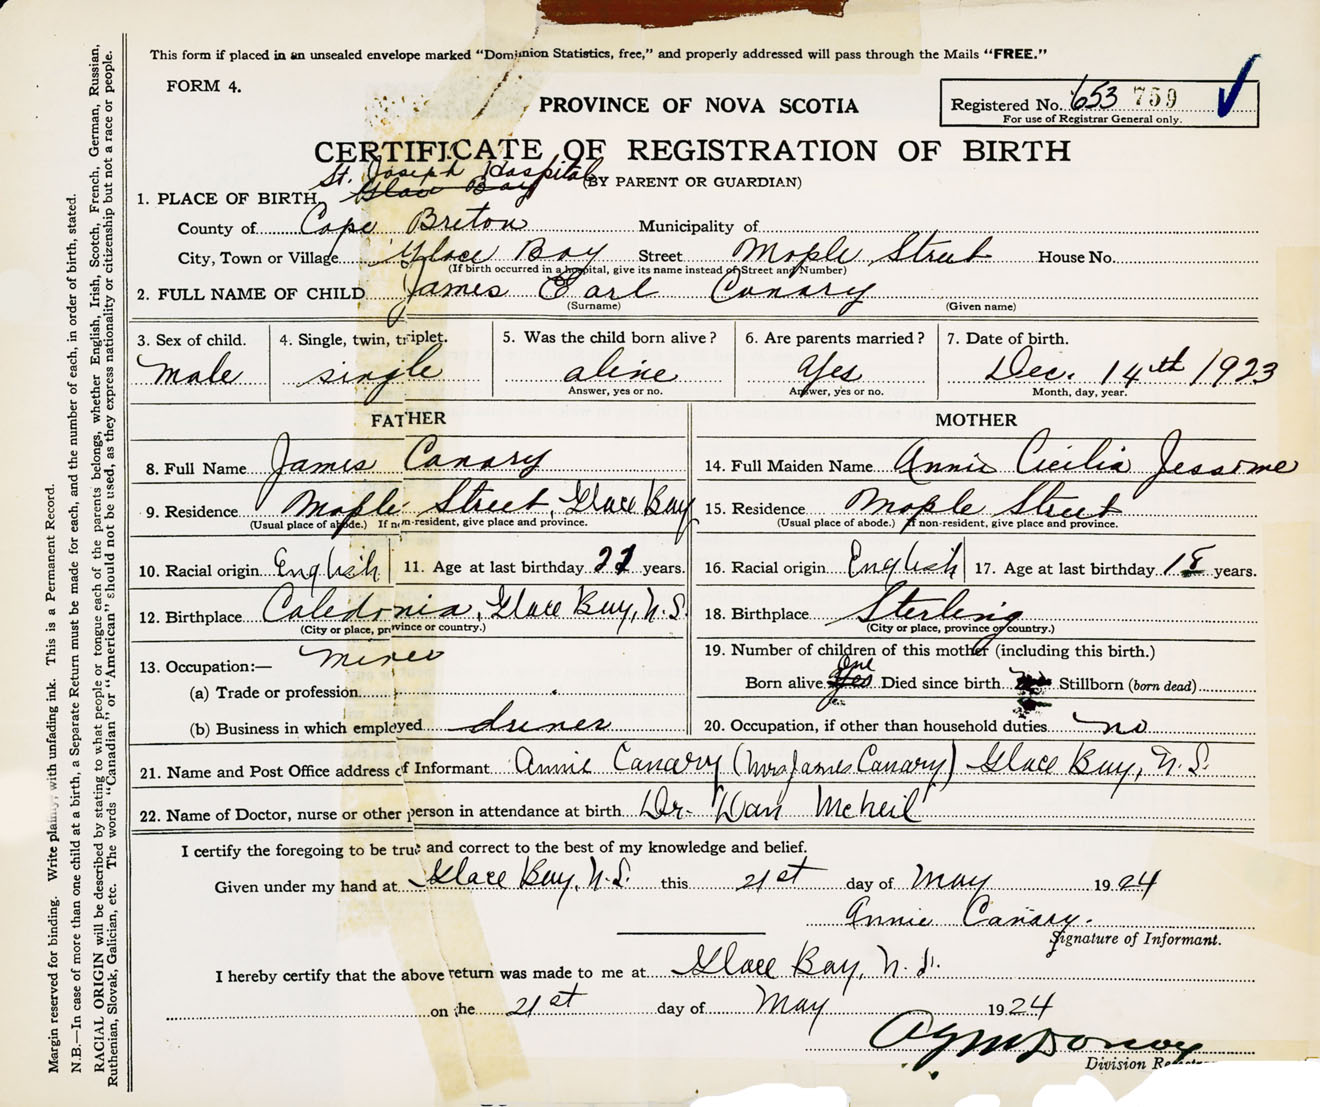 This form if placed in an unsealed envelope marked "Dominion Statistics, free," and properly addressed will pass through the Mails "FREE."
FORM 4.
PROVINCE OF NOVA SCOTIA
Registered No. 653 759
For use of Registrar General only.
CERTIFICATE OF REGISTRATION OF BIRTH
(BY PARENT OR GUARDIAN)
St. Joseph Hospital
1. PLACE OF BIRTH Glace Bay
County of Cape Breton Municipality of
City, Town or Village Glace Bay Street Maple Street House No.
(If birth occurred in a hospital, give its name instead of Street and Number)
2. FULL NAME OF CHILD James Earl Canary
(Surname) (Given name)
3. Sex of child. 4. Single, twin, triplet. 5. Was the child born alive? 6. Are parents married? 7. Date of birth.
Male single alive Yes Dec. 14th 1923
Answer, yes or no. Answer, yes or no. Month, day, year.
FATHER MOTHER
8. Full Name James Canary 14. Full Maiden Name Annie Cicilia Jessome
9. Residence Maple Street, Glace Bay 15. Residence Maple Street
(Usual place of abode.) If non-resident, give place and province. (Usual place of abode.) If non-resident, give place and province.
10. Racial origin English 11. Age at last birthday years. 16. Racial origin English 17. Age at last birthday 18 years.
12. Birthplace Caledonia, Glace Bay, N.S. 18. Birthplace Sterling
(City or place, province or country.) (City or place, province or country.)
13. Occupation:— miner 19. Number of children of this mother (including this birth.)
(a) Trade or profession Born alive One Yes Died since birth Stillborn (born dead)
yes
(b) Business in which employed driver 20. Occupation, if other than household duties no
21. Name and Post Office address of Informant Annie Canary (Mrs James Canary) Glace Bay, N.S.
22. Name of Doctor, nurse or other person in attendance at birth Dr. Dan McNeil
I certify the foregoing to be true and correct to the best of my knowledge and belief.
Given under my hand at Glace Bay, N.S. this 21st day of May 1924
Annie Canary.
Signature of Informant.
I hereby certify that the above return was made to me at Glace Bay, N.S.
on the 21st day of May 1924
Division
Margin reserved for binding. Write plainly, with unfading ink. This is a Permanent Record.
N.B.—In case of more than one child at a birth, a Separate Return must be made for each, and the number of each, in order of birth, stated.
RACIAL ORIGIN will be described by stating to what people or tongue each of the parents belongs, whether English, Irish, Scotch, French, German, Russian,
Ruthenian, Slovak, Galician, etc. The words "Canadian" or "American" should not be used, as they express nationality or citizenship but not a race or people.